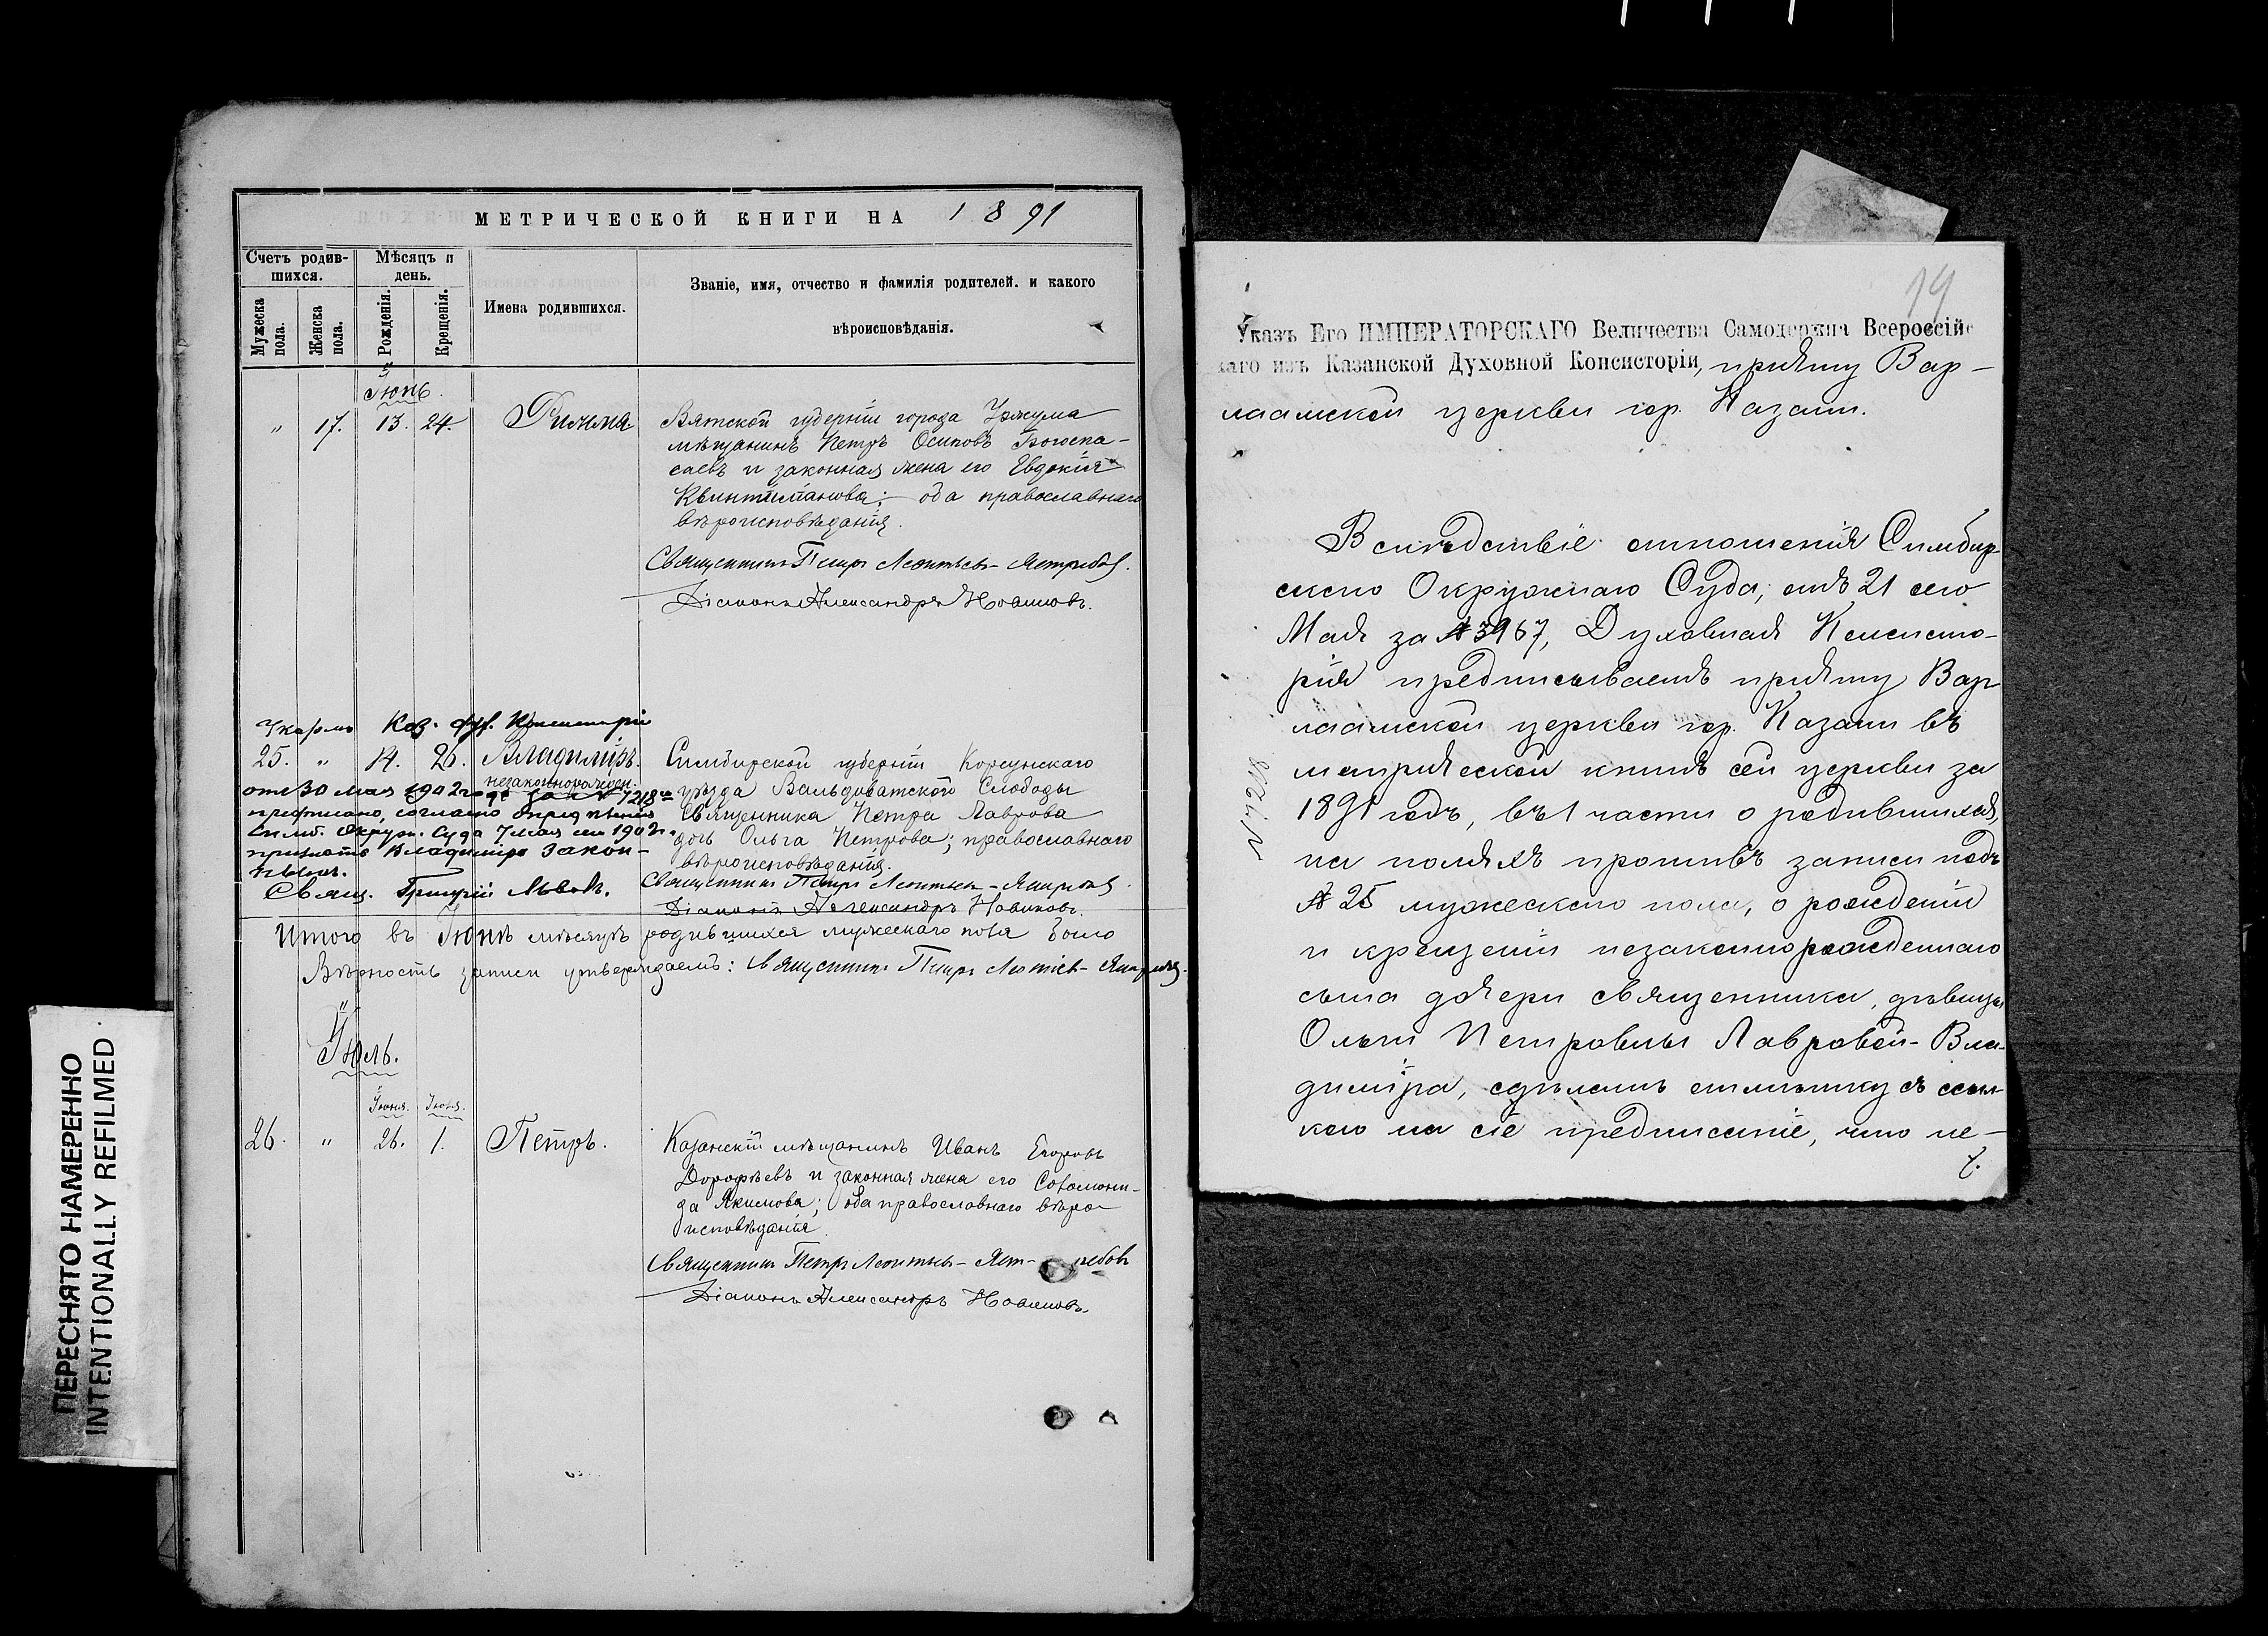 МЕТРИЧЕСКОЙ КНИГИ НА 1891
Счетъ родив-
шихся.
Мѣсяцъ и
день.
Мужеска
пола.
Женска
пола.
Рожденія.
Крещенія.
Имена родившихся.
Званіе, имя, отчество и фамилія родителей. и какого
вѣроисповѣданія.
Іюнь.
" 17. 13. 24. Римма
Вятской губерніи города Уржума
мѣщанинъ Петръ Осиповъ Богоспа-
саевъ и законная жена его Евдокія
оба православнаго
вѣроисповѣданія.
Священникъ Петръ Леонтьев-Ястребов.
Діаконъ Александръ Новиковъ.
Указомъ Каз. Дух. Консисторіи
25. " 14. 26. Владиміръ.
незаконнорожден.
Симбирской губерніи Корсунскаго
уѣзда Вальдиватской Слободы
Священника Петра Лаврова
дочь Ольга Петрова; православнаго
вѣроисповѣданія.
отъ 30 мая 1902 года за № 7218
предписано, согласно опредѣленія
Симб. Окружн. Суда 7 мая сего 1902 г.
признать Владиміра закон-
нымъ.
Свящ. Григорій Львов.
Священникъ Петръ Леонтьев-Ястребов
Діаконъ Александръ Новиковъ.
Итого въ Іюнѣ мѣсяцѣ родившихся мужескаго пола было
Вѣрность записи утверждаемъ: Священникъ Петръ Леонтьев-Ястребов.
Іюль.
Іюня. Іюля.
26. " 26. 1. Петръ.
Казанскій мѣщанинъ Иванъ Егоровъ
Дорофѣевъ и законная жена его Соломони-
да Якимова; оба православнаго вѣро-
исповѣданія
Священникъ Петръ Леонтьев-Яст-ребовъ
Діаконъ Александръ Новиковъ.
ПЕРЕСНЯТО НАМЕРЕННО
INTENTIONALLY REFILMED.
19
Указъ Его ИМПЕРАТОРСКАГО Величества Самодержца Всероссійс
каго изъ Казанской Духовной Консисторіи, причту Вар-
лаамской церкви гор. Казани.
Вслѣдствіе отношенія Симбир-
скаго Окружнаго Суда, отъ 21 сего
Мая за № 3967, Духовная Консисто-
рія предписываетъ причту Вар-
лаамской церкви гор. Казани въ
метрической книгѣ сей церкви за
1891 годъ, въ 1 части о родившихся,
на поляхъ противъ записи подъ
№ 25 мужескаго пола, о рожденіи
и крещеніи незаконнорожденнаго
сына дочери священника, дѣвицы
Ольги Петровны Лавровой-Вла-
диміра, сдѣлать отмѣтку съ ссыл-
кою на сіе предписаніе, что не-
№ 7218